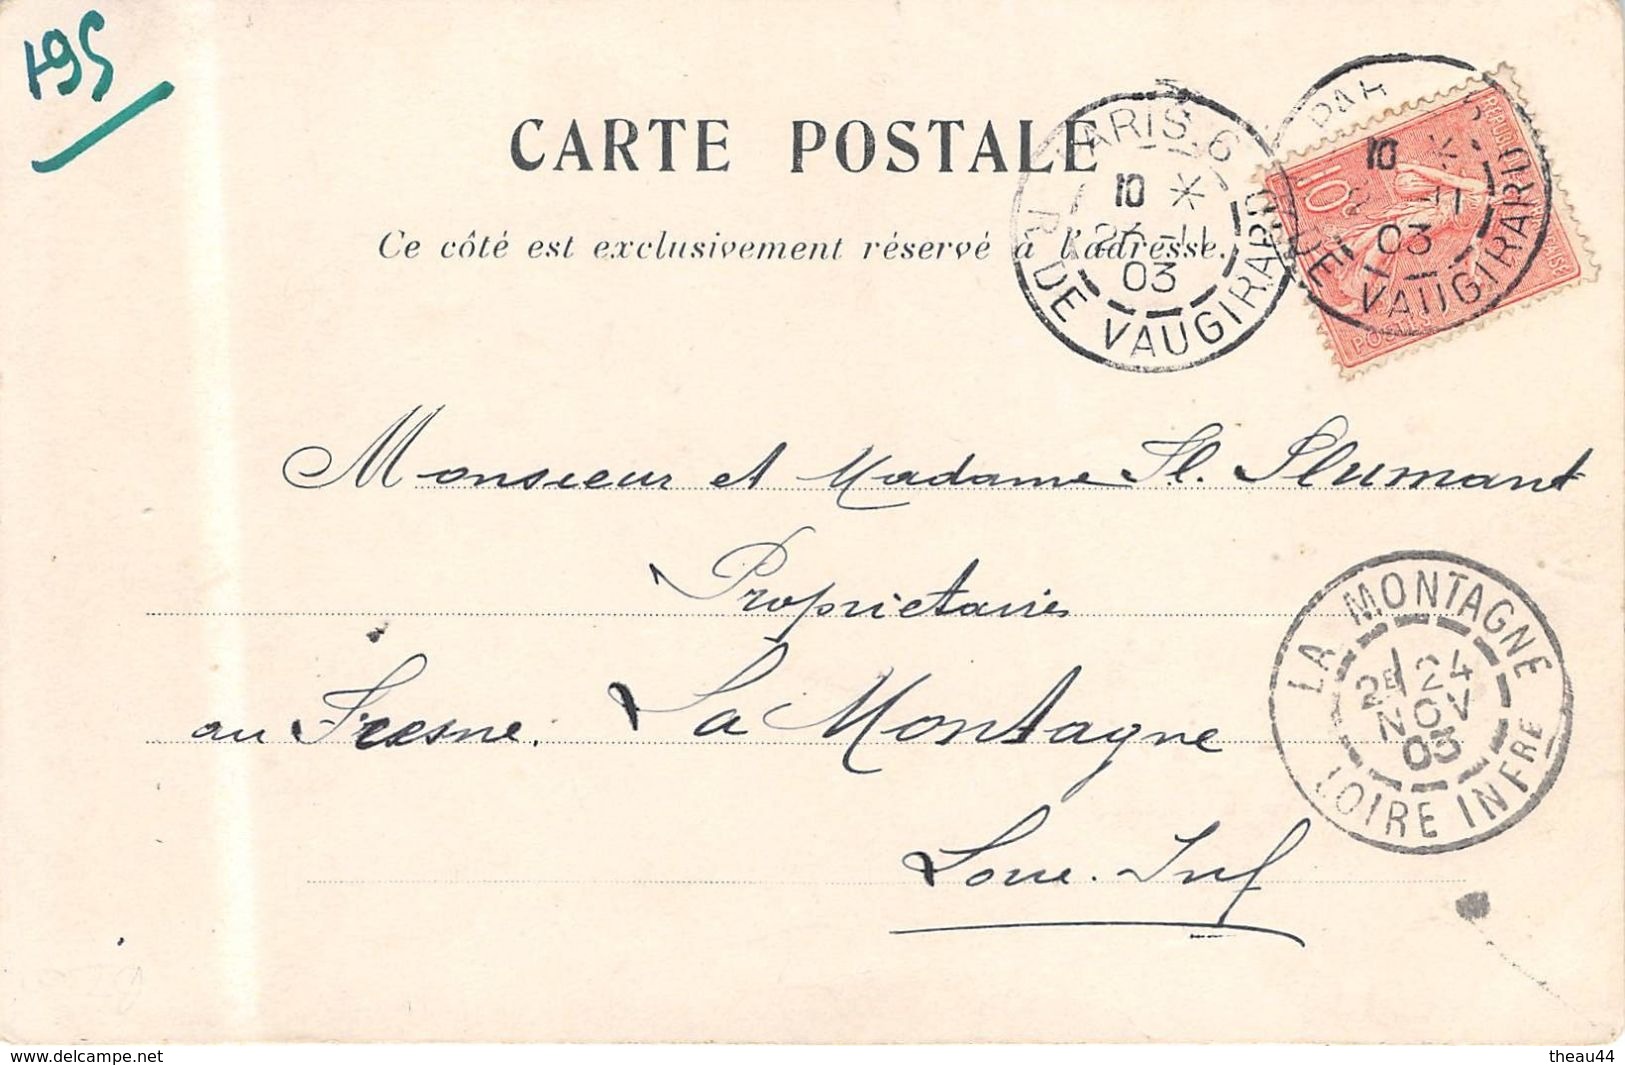 195
CARTE POSTALE
Ce côté est exclusivement réservé à l'adresse.
PARIS. 6
10 *
23 -11
03
R. DE VAUGIRARD
PAR
10 *
-11
03
DE VAUGIRARD
10
POSTES
Monsieur et Madame
Propriétaires
au Fresne. La Montagne
Loire. Inf
LA MONTAGNE
2E 24
NOV
03
LOIRE INFRE
www.delcampe.net
theau44